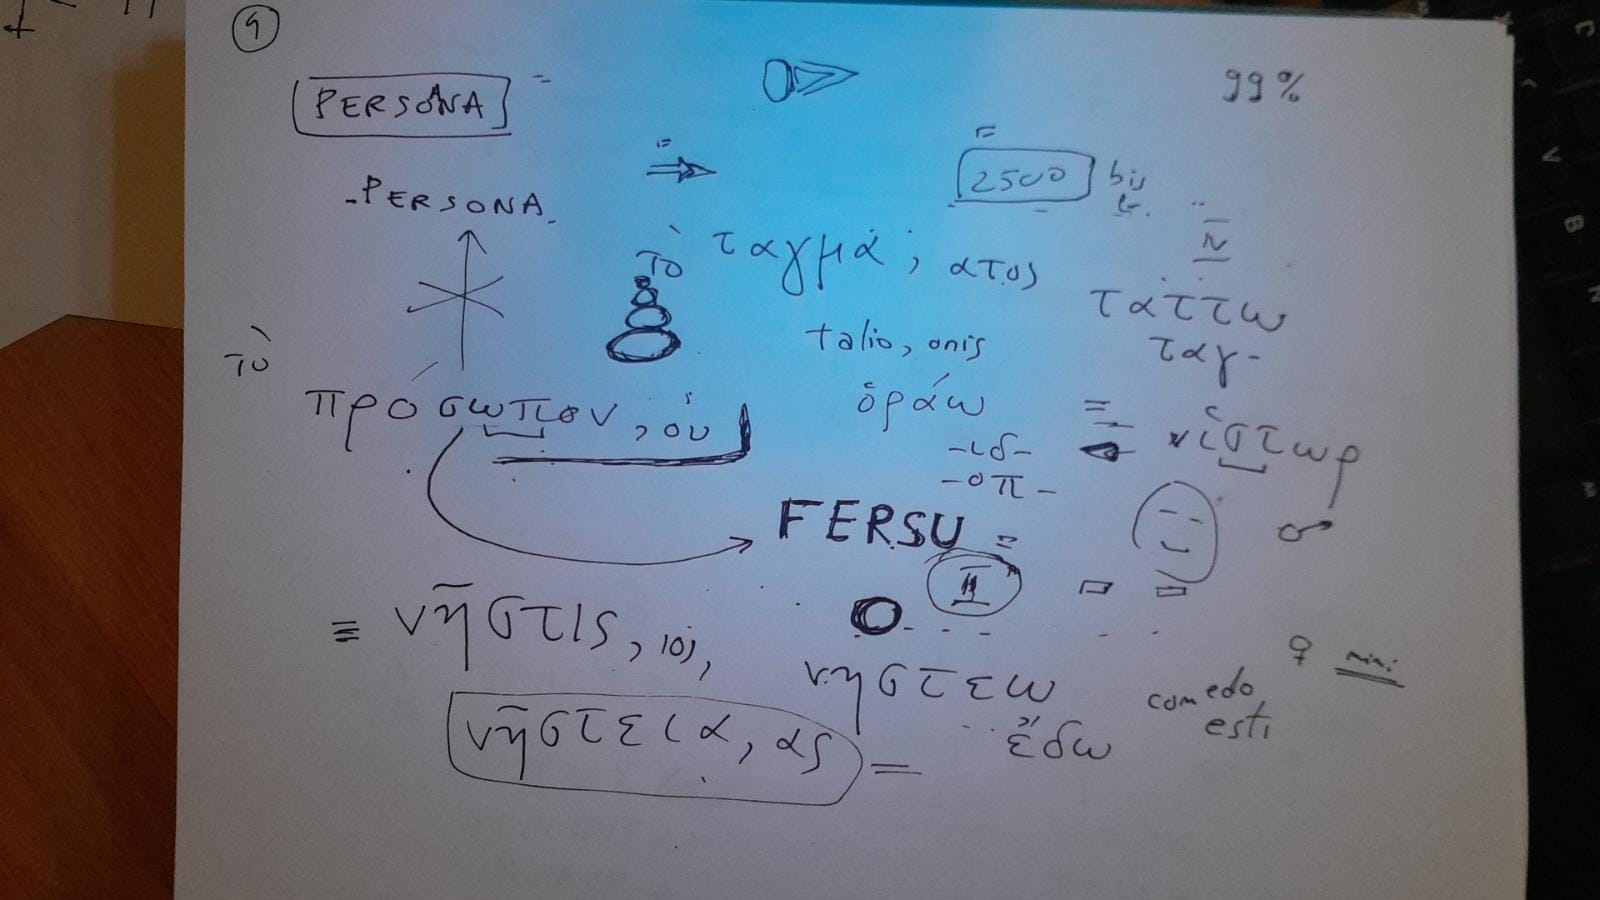 9
PERSONA =
99%
2500 bis
PERSONA
τὸ ταγμά, ατος
τάττω
ταγ-
talio, onis
τὸ
πρόσωπον, ου
ὁράω
-ιδ-
-οπ-
= ἵστωρ
FERSU =
♂
≡ νῆστις, ιος,
νηστεω
♀ mini
comedo
esti
νῆστεια, ας =
ἔδω